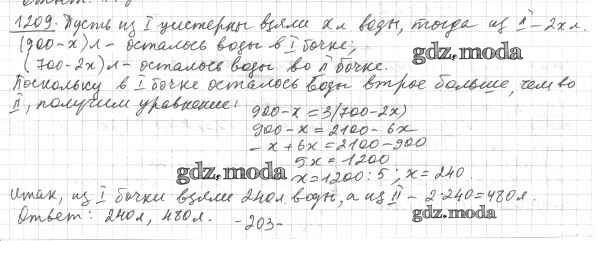 1209. Пусть из I цистерны взяли x л воды, тогда из II – 2x л.
(900-x) л – осталось воды в I бочке;
gdz.moda
(700-2x) л – осталось воды во II бочке.
Поскольку в I бочке осталось воды втрое больше, чем во
II, получим уравнение:
900-x=3(700-2x)
900-x=2100-6x
-x+6x=2100-900
5x=1200
gdz.moda
x=1200:5; x=240.
Итак, из I бочки взяли 240л воды, а из II – 2·240=480л.
Ответ: 240л, 480л.
gdz.moda
-203-